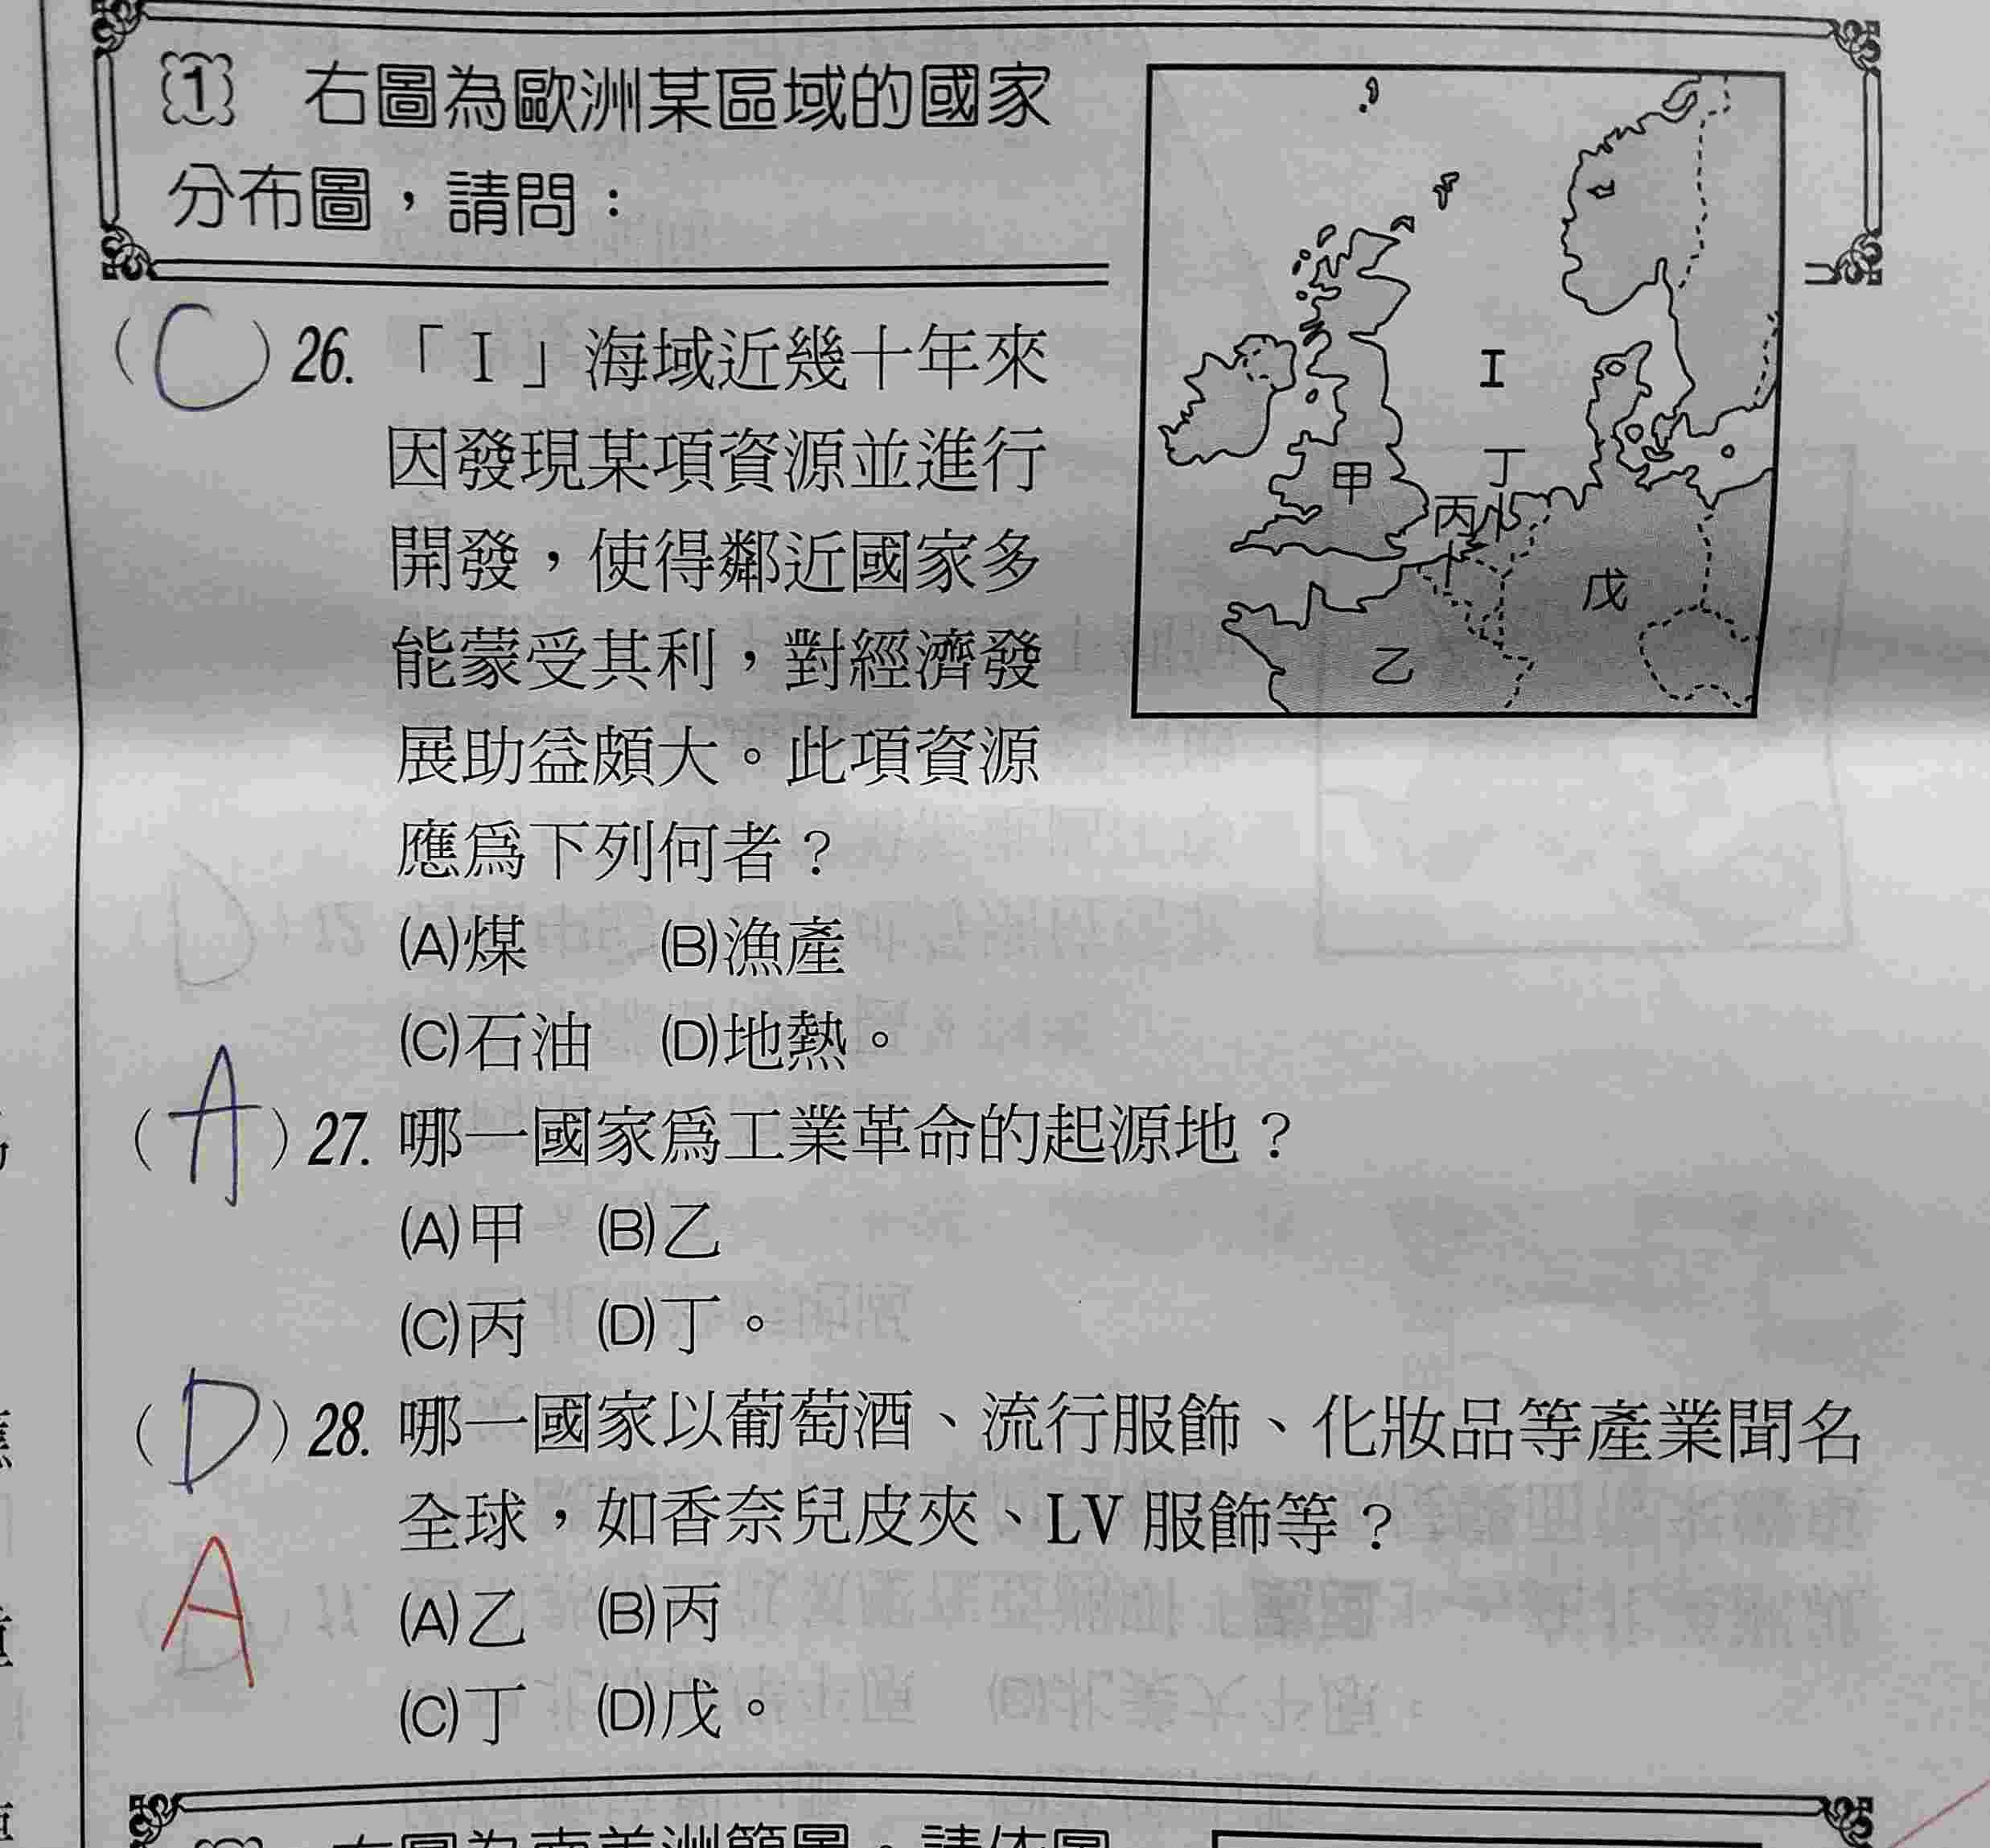 1 右圖為歐洲某區域的國家
分布圖，請問：
I
甲
丁
丙
戊
乙
(C) 26. 「I」海域近幾十年來
因發現某項資源並進行
開發，使得鄰近國家多
能蒙受其利，對經濟發
展助益頗大。此項資源
應為下列何者？
(A)煤 (B)漁產
(C)石油 (D)地熱。
(A) 27. 哪一國家為工業革命的起源地？
(A)甲 (B)乙
(C)丙 (D)丁。
(D) 28. 哪一國家以葡萄酒、流行服飾、化妝品等產業聞名
全球，如香奈兒皮夾、LV 服飾等？
A
(A)乙 (B)丙
(C)丁 (D)戊。
右圖為南美洲簡圖，請依圖